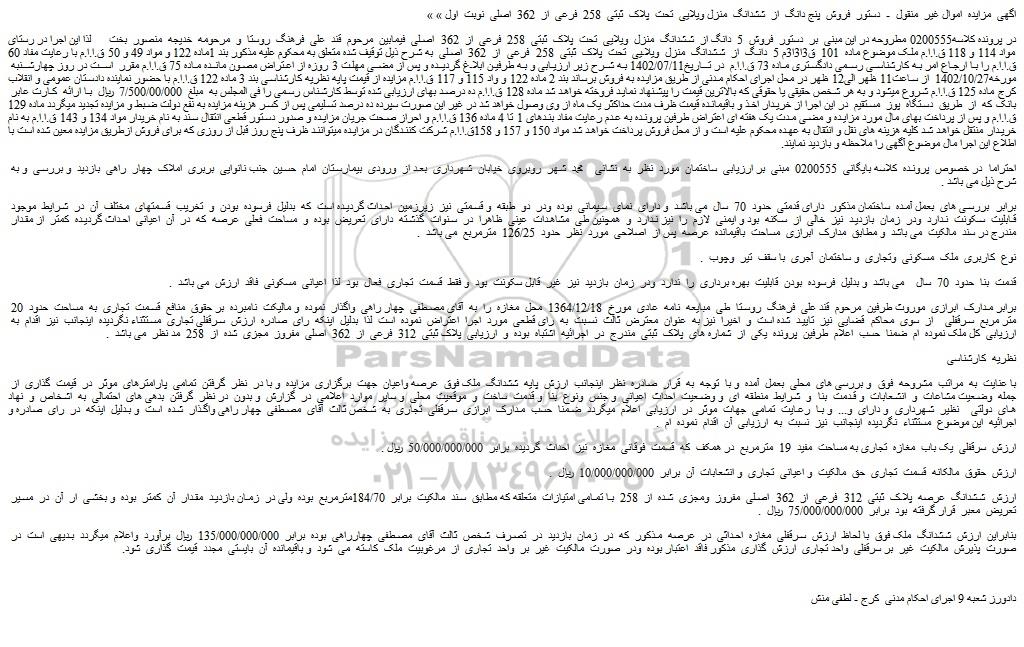 آگهی مزایده اموال غیر منقول - دستور فروش پنج دانگ از ششدانگ منزل ویلایی تحت پلاک ثبتی 258 فرعی از 362 اصلی نوبت اول » »
در پرونده کلاسه0200555 مطروحه در این مبنی بر دستور فروش 5 دانگ از ششدانگ منزل ویلایی تحت پلاک ثبتی 258 فرعی از 362 اصلی فیمابین مرحوم قند علی فرهنگ روستا و مرحومه خدیجه منصور بخت لذا این اجرا در رستای
مواد 114 و 118 ق.ا.ا.م ملک موضوع ماده 101 ق.ا.ا.م 5 دانگ از ششدانگ منزل ویلایی تحت پلاک ثبتی 258 فرعی از 362 اصلی به شرح ذیل توقیف شده متعلق به محکوم علیه مذکور بند 1ماده 122 و مواد 49 و 50 ق.ا.ا.م با رعایت مفاد 60
ق.ا.ا.م را با ارجاع امر به کارشناسی رسمی دادگستری ماده 73 ق.ا.ا.م در تاریخ1402/07/11 به شرح زیر ارزیابی و به طرفین ابلاغ گردیده و پس از مضی مهلت 3 روزه از اعتراض مصون مانده ماده 75 ق.ا.ا.م مقرر است در روز چهارشنبه
مورخه1402/10/27 از ساعت11 ظهر الی12 ظهر در محل اجرای احکام مدنی از طریق مزایده به فروش برساند بند 2 ماده 122 و واد 115 و 117 ق.ا.ا.م مزایده از قیمت پایه نظریه کارشناسی بند 3 ماده 122 ق.ا.ا.م با حضور نماینده دادستان عمومی و انقلاب
کرج ماده 125 ق.ا.ا.م شروع میشود و به هر شخص حقیقی یا حقوقی که بالاترین قیمت را پیشنهاد نماید فروخته خواهد شد ماده 128 ق.ا.ا.م ده درصد بهای ارزیابی شده توسط کارشناس رسمی را فی المجلس به مبلغ 7/500/000/000 ریال با ارائه کارت عابر
بانک که از طریق دستگاه پوز مستقیم در این اجرا از خریدار اخذ و باقیمانده قیمت ظرف مدت حداکثر یک ماه از وی وصول خواهد شد در غیر این صورت سپرده ده درصد تسلیمی پس از کسر هزینه مزایده به نفع دولت ضبط و مزایده تجدید میگردد ماده 129
ق.ا.ا.م و پس از پرداخت بهای مال مورد مزایده و مضی مدت یک هفته ای اعتراض طرفین پرونده به عدم رعایت مفاد بندهای 1 تا 4 ماده 136 ق.ا.ا.م و احراز صحت جریان مزایده و صدور دستور قطعی انتقال سند به نام خریدار مواد 134 و 143 ق.ا.ا.م به نام
خریدار منتقل خواهد شد کلیه هزینه های نقل و انتقال به عهده محکوم علیه است و از محل فروش پرداخت خواهد شد مواد 150 و 157 و 158ق.ا.ا.م شرکت کنندگان در مزایده میتوانند ظرف پنج روز قبل از روزی که برای فروش ازطریق مزایده معین شده است با
اطلاع این اجرا مال موضوع آگهی را ملاحظه و بازدید نمایند.
احتراما در خصوص پرونده کلاسه بایگانی 0200555 مبنی بر ارزیابی ساختمان مورد نظر به نشانی شهر روبروی خیابان شهرداری بعد از ورودی بیمارستان امام حسین جنب نانوایی بربری املاک چهار راهی بازدید و بررسی و به
شرح ذیل می باشد .
برابر بررسی های بعمل آمده ساختمان مذکور دارای قدمتی حدود 70 سال می باشد و دارای نمای سیمانی بوده ودر دو طبقه و قسمتی نیز زیرزمین احداث گردیده است که بدلیل فرسوده بودن و تخریب قسمتهای مختلف آن در شرایط موجود
قابلیت سکونت ندارد ودر زمان بازدید نیز خالی از سکنه بود و ایمنی لازم را نیز ندارد و همچنین طی مشاهدات عینی ظاهرا در سنوات گذشته دارای تعریض بوده و مساحت فعلی عرصه که در آن اعیانی احداث گردیده کمتر از مقدار
مندرج در سند مالکیت می باشد و مطابق مدارک ابرازی مساحت باقیمانده عرصه پس از اصلاحی مورد نظر حدود 126/25 مترمربع می باشد .
نوع کاربری ملک مسکونی وتجاری و ساختمان آجری با سقف تیر وچوب .
قدمت بنا حدود 70 سال می باشد و بدلیل فرسوده بودن قابلیت بهره برداری را ندارد ودر زمان بازدید نیز غیر قابل سکونت بود و فقط قسمت تجاری فعال بود لذا اعیانی مسکونی فاقد ارزش می باشد .
برابر مدارک ابرازی موروث طرفین مرحوم قند علی فرهنگ روستا طی مبایعه نامه عادی مورخ 1364/12/18 محل مغازه را به آقای مصطفی چهار راهی واگذار نموده و مالیکت نامبرده بر حقوق منافع قسمت تجاری به مساحت حدود 20
متر مربع سرقفلی از سوی محاکم قضایی نیز تایید شده است و اخیرا نیز به عنوان معترض ثالث نسبت به رای قطعی مورد اجرا اعتراض نموده است لذا بدلیل اینکه رای صادره ارزش سرقفلی تجاری مستثناء نگردیده اینجانب نیز اقدام به
ارزیابی کل ملک نموده ام ضمنا حسب اعلام طرفین پرونده یکی از شماره های پلاک ثبتی مندرج در اجرائیه اشتباه بوده و ارزیابی پلاک ثبتی 312 فرعی از 362 اصلی مفروز مجزی شده از 258 مد نظر می باشد .
نظریه کارشناسی
با عنایت به مراتب مشروحه فوق و بررسی های محلی بعمل آمده و با توجه به قرار صادره نظر اینجانب ارزش پایه ششدانگ ملک فوق عرصه واعیان جهت برگزاری مزایده و با در نظر گرفتن تمامی پارامترهای موثر در قیمت گذاری از
جمله وضعیت مشاعات و انشعابات و قدمت بنا و شرایط منطقه ای و وضعیت احداث اعیانی و جنس ونوع بنا و قدمت ساخت و موقعیت محلی و سایر موارد اعلامی در گزارش و بدون در نظر گرفتن بدهی های احتمالی به اشخاص و نهاد
های دولتی نظیر شهرداری و دارای و... و با رعایت تمامی جهات موثر در ارزیابی اعلام میگردد ضمنا حسب مدارک ابرازی سرقفلی تجاری به شخص ثالث آقای مصطفی چهار راهی واگذار شده است و بدلیل اینکه در رای صادره و
اجرائیه این موضوع مستثناء نگردیده اینجانب نیز نسبت به ارزیابی آن اقدام نموده ام .
ارزش سرقفلی یک باب مغازه تجاری به مساحت مفید 19 مترمربع در همکف که قسمت فوقانی مغازه نیز احداث گردیده برابر 50/000/000/000 ریال .
ارزش حقوق مالکانه قسمت تجاری حق مالکیت و اعیانی تجاری و انشعابات آن برابر 10/000/000/000 ریال .
ارزش ششدانگ عرصه پلاک ثبتی 312 فرعی از 362 اصلی مفروز ومجزی شده از 258 با تمامی امتیازات متعلقه که مطابق سند مالکیت برابر 184/70مترمربع بوده ولی در زمان بازدید مقدار آن کمتر بوده و بخشی از آن در مسیر
تعریض معبر قرار گرفته بود برابر 75/000/000/000 ریال .
بنابراین ارزش ششدانگ ملک فوق با لحاظ ارزش سرقفلی مغازه احداثی در عرصه مذکور که در زمان بازدید در تصرف شخص ثالث آقای مصطفی چهارراهی بوده برابر 135/000/000/000 ریال برآورد واعلام میگردد بدیهی است در
صورت پذیرش مالکیت غیر بر سرقفلی واحد تجاری ارزش گذاری مذکور فاقد اعتبار بوده ودر صورت مالکیت غیر بر واحد تجاری از مرغوبیت ملک کاسته می شود و باقیمانده آن بایستی مجدد قیمت گذاری شود.
دادورز شعبه 9 اجرای احکام مدنی کرج - لطفی منش
ParsNamadData
پایگاه اطلاع رسانی مناقصه و مزایده
۰۲۱-۸۸۳۴۹۶۷۰-۵